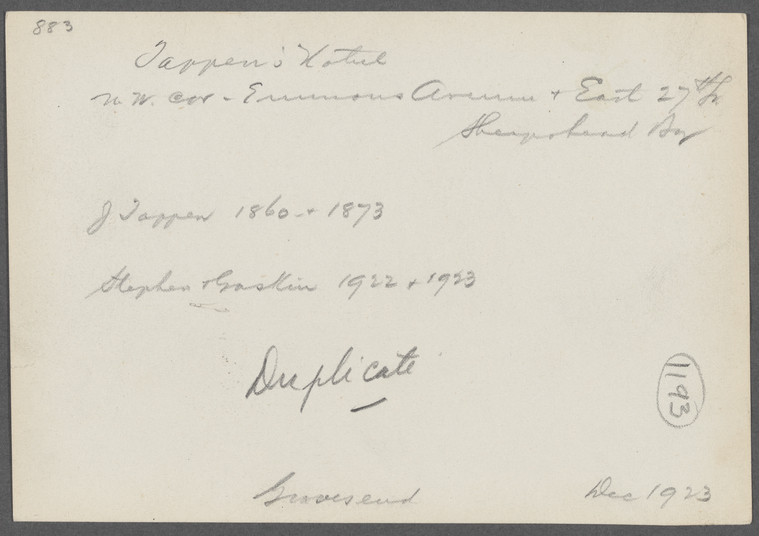 883
Tappen's Hotel
N.W. cor - Emmons Avenue + East 27th St.
Sheepshead Bay
J Tappen 1860 + 1873
Stephen + Gaskin 1922 + 1923
Duplicate
1193
Gravesend Dec 1923